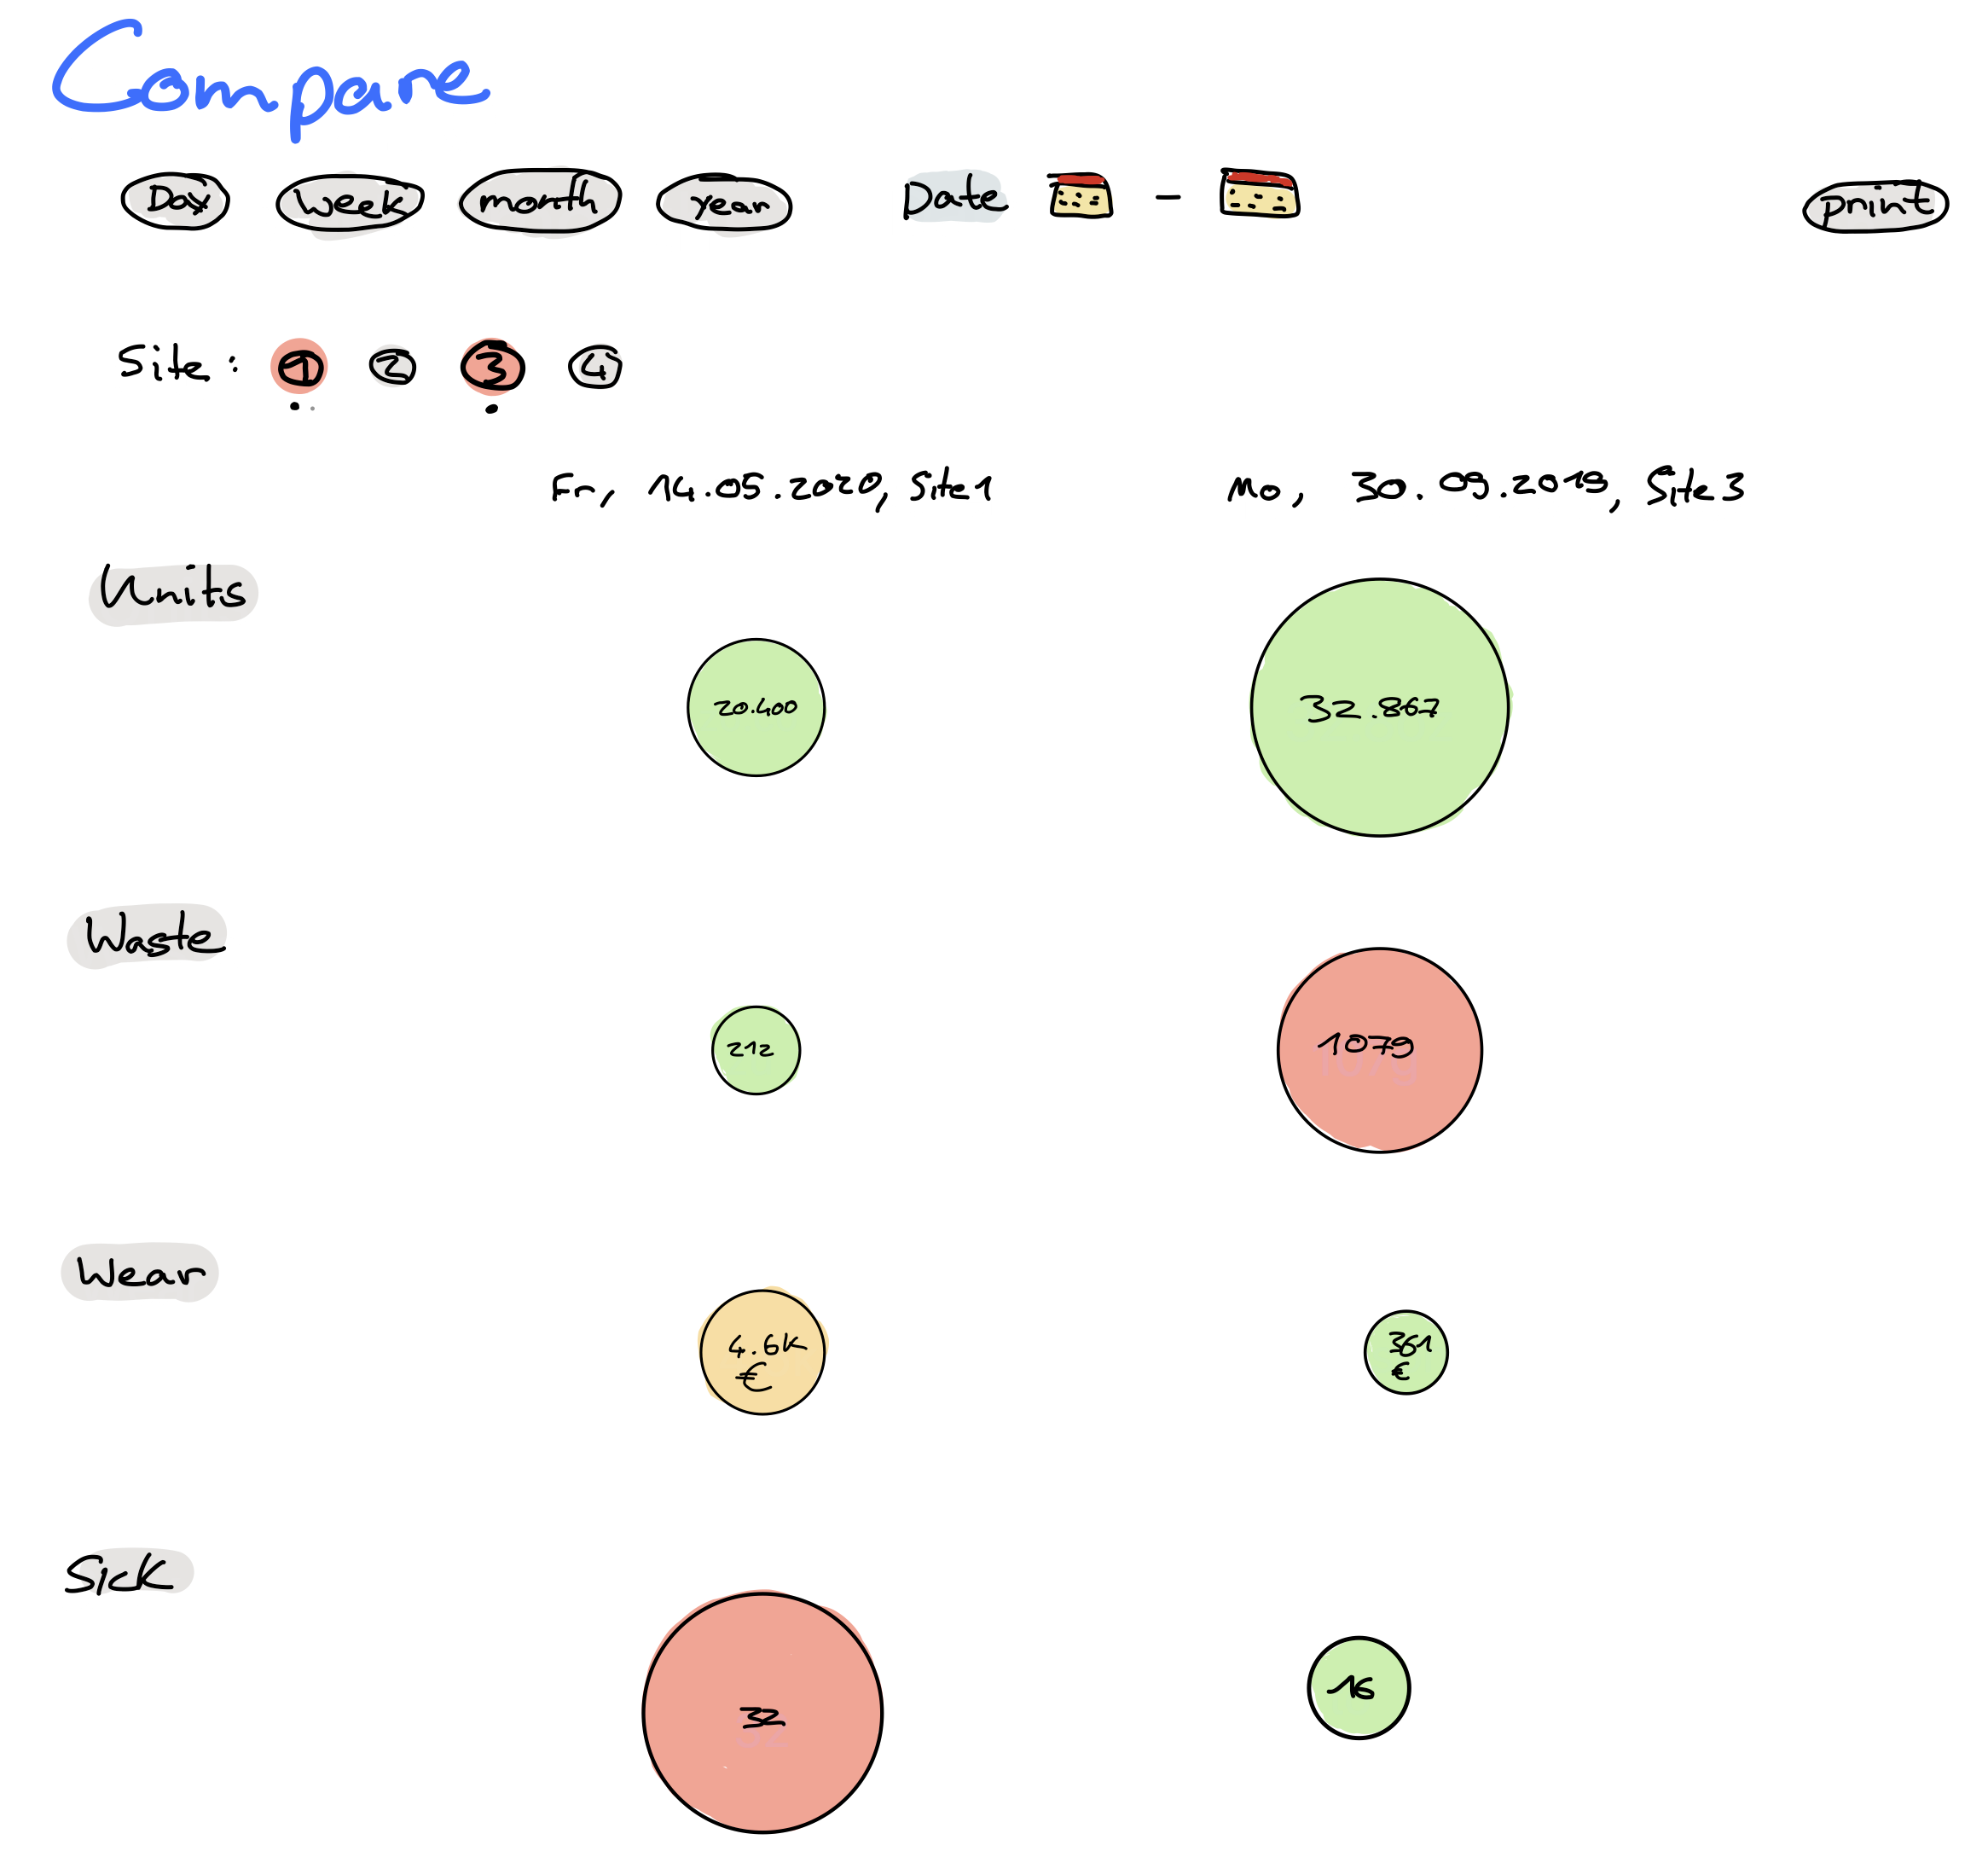 Compare
Day Week Month Year Date - Print
Site: 1 2 3 4
Fr, 14.05.2020, Site 1 Mo, 30.09.2019, Site 3
Units
20.400 32.867
Waste
212 1079
Wear
4.6k € 361 €
Sick
32 16